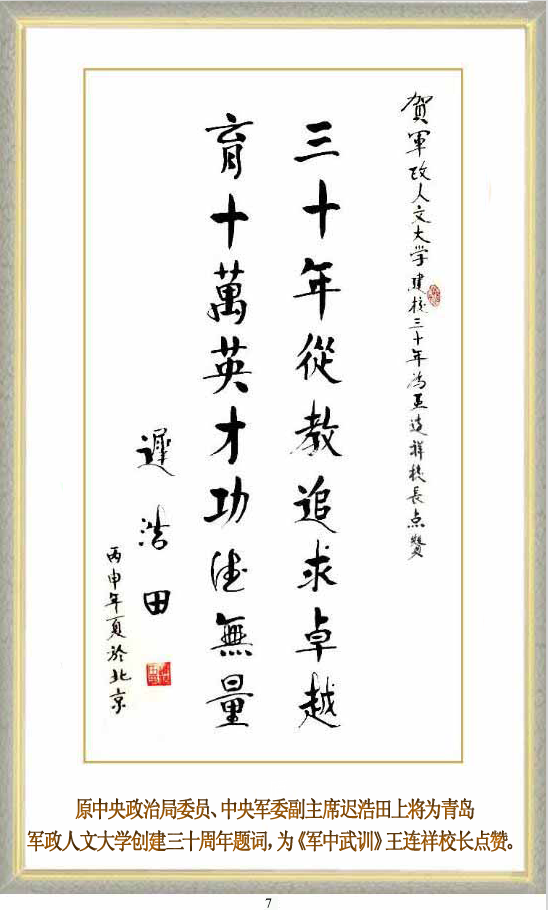 贺軍政人文大学建校三十年為王連祥校長点贊
三十年從教追求卓越
育十萬英才功德無量
遲浩田
丙申年夏於北京
原中央政治局委员、中央军委副主席迟浩田上将为青岛
军政人文大学创建三十周年题词，为《军中武训》王连祥校长点赞。
7